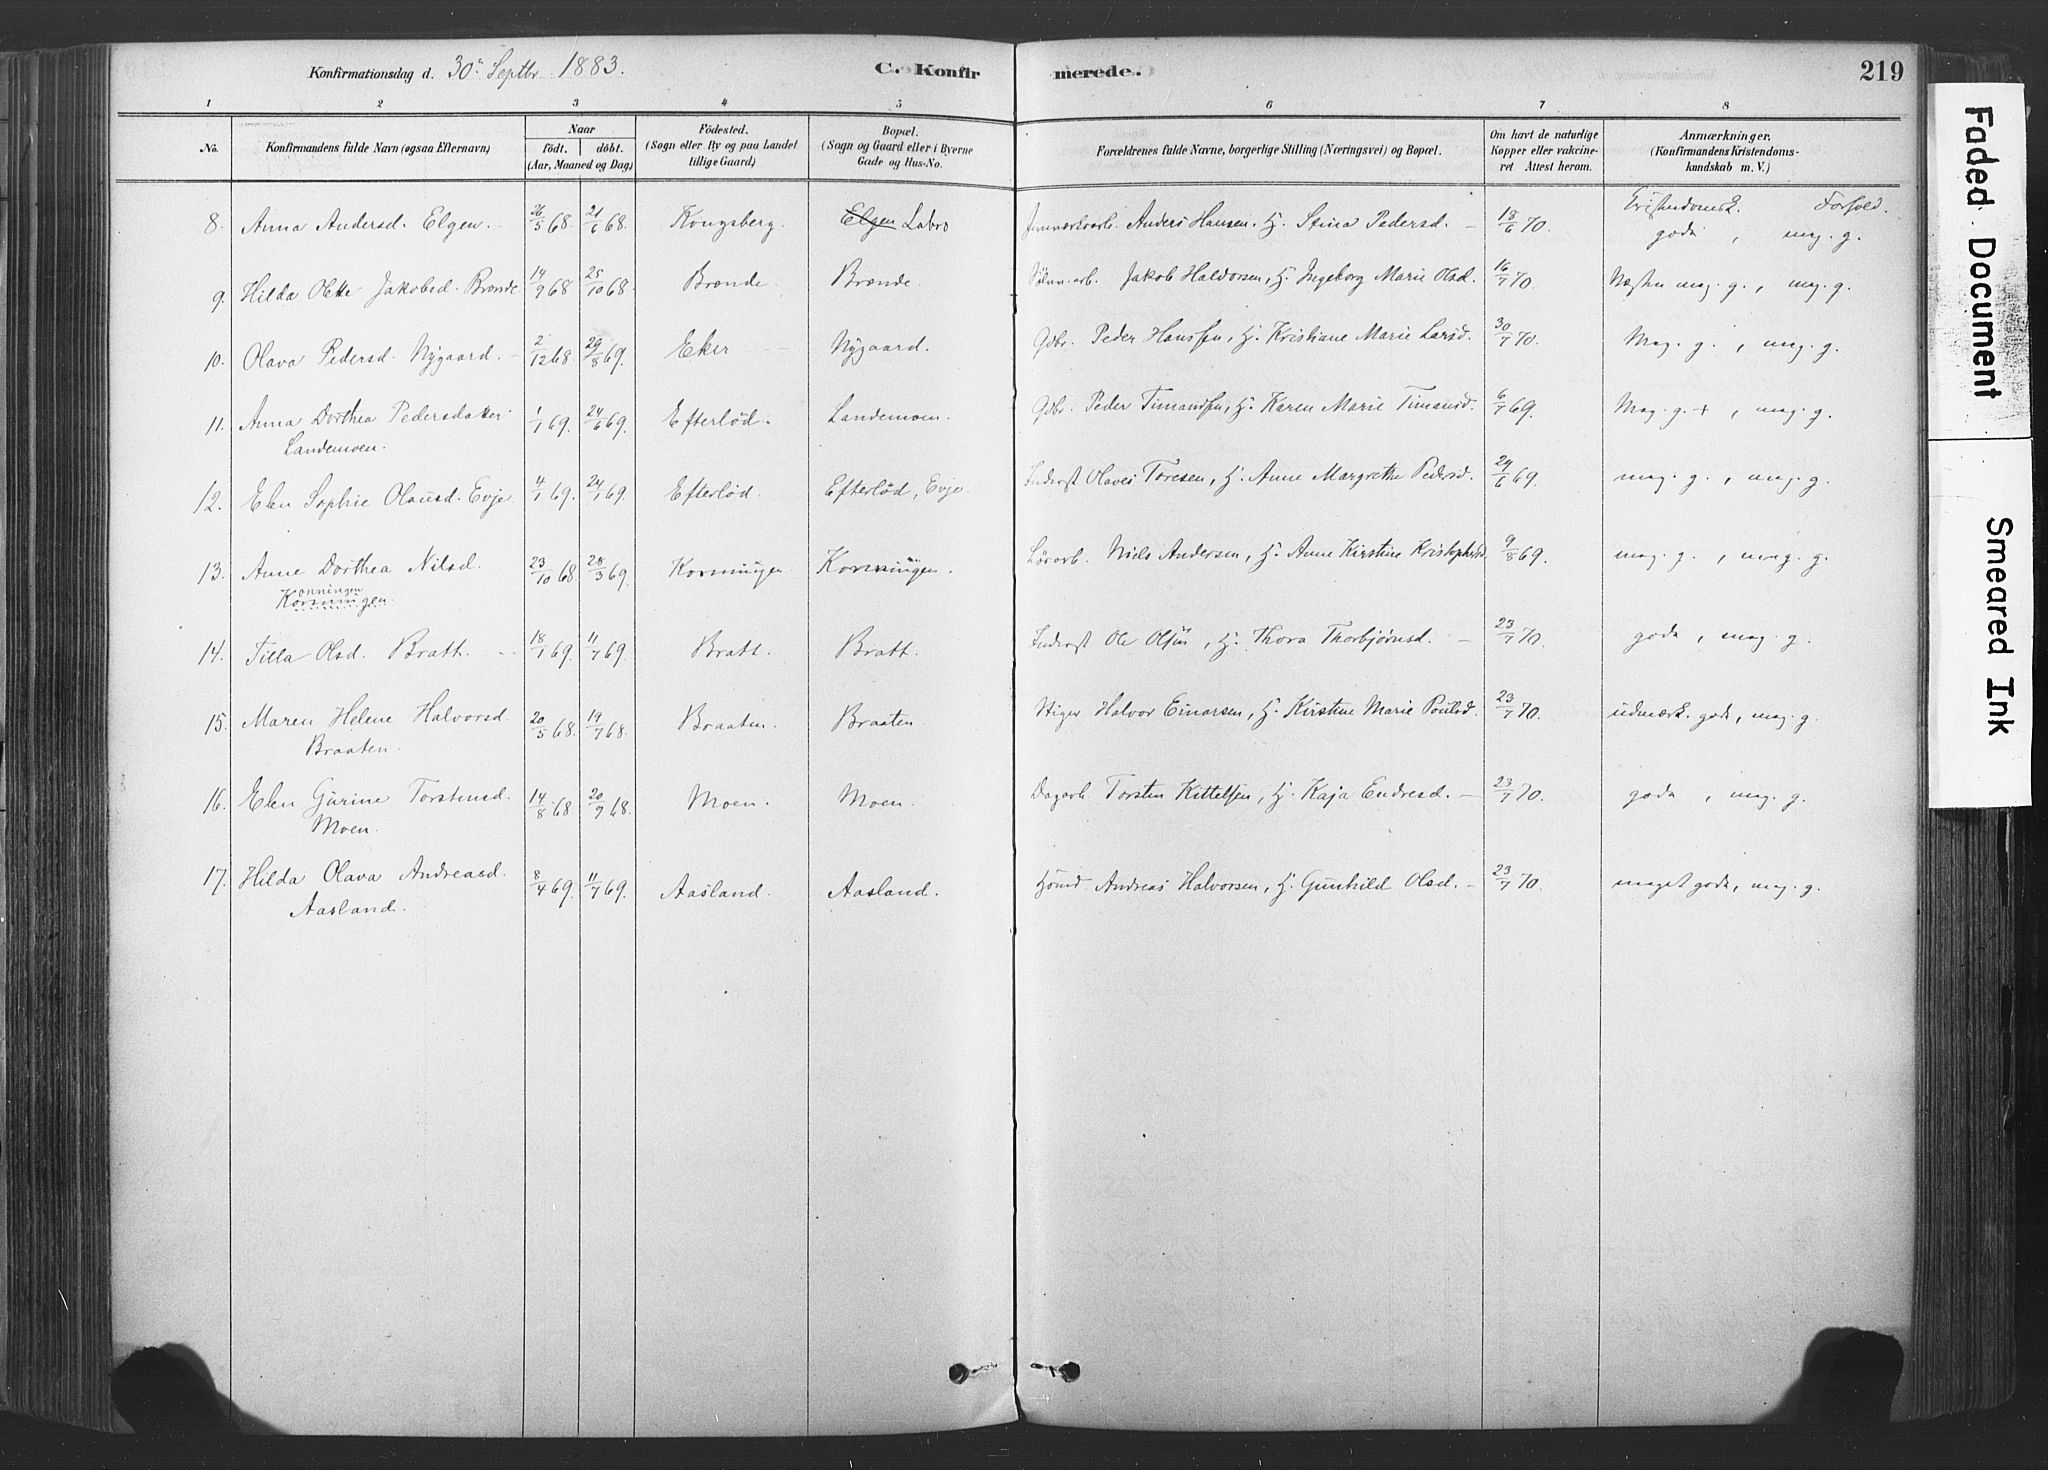 Konfirmationsdag d. 30' Septbr 1883. C. Konfirmerede. 219
1 2 3 4 5 6 7 8
No. Konfirmandens fulde Navn (ogsaa Efternavn) Naar født. døbt. (Aar, Maaned og Dag) Fødested. (Sogn eller By og paa Landet tillige Gaard) Bopæl. (Sogn og Gaard eller i Byerne Gade og Hus-No. Forældrenes fulde Navne, borgerlige Stilling (Næringsvei) og Bopæl. Om havt de naturlige Kopper eller vakcineret Attest herom. Anmærkninger. (Konfirmandens Kristendomskundskab m. V.)
Kristendomsk. Forhold.
8. Anna Andersd. Elgen. 26/5 68 21/6 68. Kongsberg. Elgen Labro Anders Hansen, Hj. Stina Pedersd. 18/6 70. godt, meg. g.
9. Hilda Olette Jakobsd. Brønde 14/9 68 25/10 68. Brønde Brønde. Jakob Haldorsen, Hj. Ingeborg Marie Olsd. 16/7 70. Næsten meg. g., meg. g.
10. Olava Pedersd. Nygaard. 2/12 68. 29/8 69. Eker Nygaard. Gdbr. Peder Hanssen, Hj. Kristiane Marie Larsd. 30/7 70. Meg. g., meg. g.
11. Anna Dorthea Pedersdatter 1/1 69. 24/6 69. Efterlød. Landemoen. Gdbr. Peder Timandsen, Hj. Karen Marie Timansd. 6/7 69. Meg. g. +, meg. g.
Landemoen.
12. Elen Sophie Olausd. Evje. 4/1 69. 24/1 69. Efterlød. Efterlød, Evje Inderst Olaves Toresen, Hj. Anne Margrethe Pedersd. 24/6 69. meg. g., meg. g.
13. Anne Dorthea Nilsd. 23/10 68. 28/3 69. Korningen Korningen. Niels Andersen, Hj. Anne Kirstine Kristophersd. 9/8 69. meg. g., meg. g.
14. Tilla Olsd. Bratt. 18/1 69. 11/7 69. Bratt. Bratt. Inderst Ole Olsen, Hj. Thora Thorbjørnsd. 23/7 70. godt, meg. g.
15. Maren Helene Halvorsd. 20/5 68. 19/7 68. Braaten. Braaten Stiger Halvor Einarsen, Hj. Kirstine Marie Poulsd. 23/7 70. udmærk. godt, meg. g.
Braaten.
16. Elen Gurine Torstensd. 14/8 68. 20/9 68. Moen. Moen. Dagarb. Torsten Kittelsen, Hj. Kaja Endresd. 23/7 70. godt, meg. g.
Moen.
17. Hilda Olava Andreasd. 8/4 69. 11/7 69. Aasland. Aasland. Andreas Halvorsen, Hj. Gunhild Olsd. 23/7 70. meget godt, meg. g.
Aasland.
Faded Document
Smeared Ink